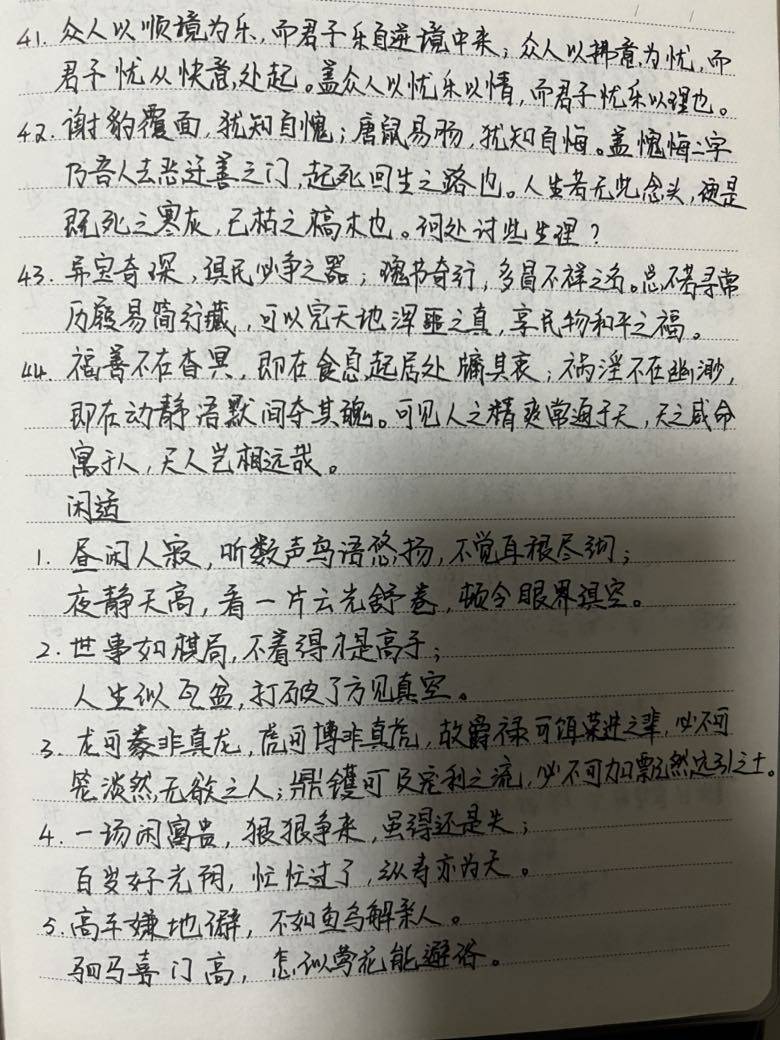 41. 众人以顺境为乐，而君子乐自逆境中来；众人以拂意为忧，而
君子忧从快意处起。盖众人以忧乐以情，而君子忧乐以理也。
42. 谢豹覆面，犹知自愧；唐鼠易肠，犹知自悔。盖愧悔二字
乃吾人去恶迁善之门，起死回生之路也。人生若无此念头，便是
既死之寒灰，已枯之槁木也。何处讨些生理？
43. 异宝奇琛，俱民必争之器；瑰节奇行，多冒不祥之名。总不若寻常
历履易简行藏，可以完天地浑噩之真，享民物和平之福。
44. 福善不在杳冥，即在食息起居处牖其衷；祸淫不在幽渺，
即在动静语默间夺其魄。可见人之精爽常通于天，天之威命
寓于人，天人岂相远哉。
闲适
1. 昼闲人寂，听数声鸟语悠扬，不觉耳根尽彻；
夜静天高，看一片云光舒卷，顿令眼界俱空。
2. 世事如棋局，不着得才是高手；
人生似瓦盆，打破了方见真空。
3. 龙可豢非真龙，虎可博非真虎，故爵禄可饵荣进之辈，必不可
笼淡然无欲之人；鼎镬可及宠利之流，必不可加飘然远引之士。
4. 一场闲富贵，狠狠争来，虽得还是失；
百岁好光阴，忙忙过了，纵寿亦为夭。
5. 高车嫌地僻，不如鱼鸟解亲人。
驷马喜门高，怎似莺花能避俗。